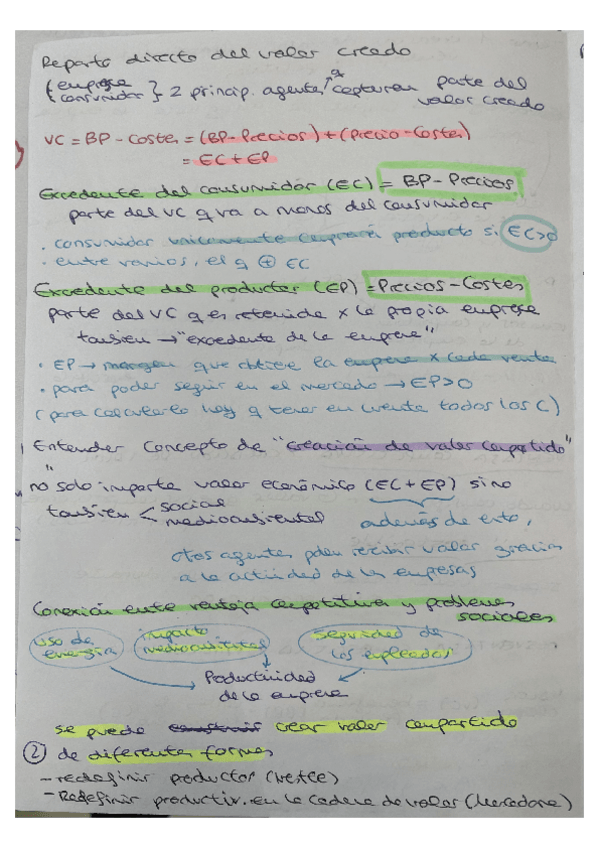 Reparto directo del valor creado
{ empresa
consumidor } - 2 princip. agentes → q capturan parte del
valor creado
VC = BP - Costes = (BP - Precios) + (Precio - Costes)
= EC + EP
Excedente del consumidor (EC) = BP - Precios
parte del VC q va a manos del consumidor
· consumidor unicamente comprará producto si EC>0
· entre varios, el q ⊕ EC
Excedente del productor (EP) = Precios - Costes
parte del VC q es retenida x la propia empresa
tambien → "excedente de la empresa"
· EP → margen que obtiene la empresa x cada venta
· para poder seguir en el mercado → EP>0
(para calcularlo hay q tener en cuenta todos los C)
Entender concepto de "creación de valor compartido"
"
no solo importa valor económico (EC + EP) sino
tambien < social
medioambiental
además de esto,
otros agentes pden recibir valor gracias
a la actividad de las empresas
Conexión entre ventaja competitiva y problemas
sociales
uso de
energía
impacto
medioambiental
seguridad de
los empleados
Productividad
de la empresa
se puede construir crear valor compartido
② de diferentes formas
- redefinir productos
- Redefinir productiv. en la cadena de valor (Mercadona)